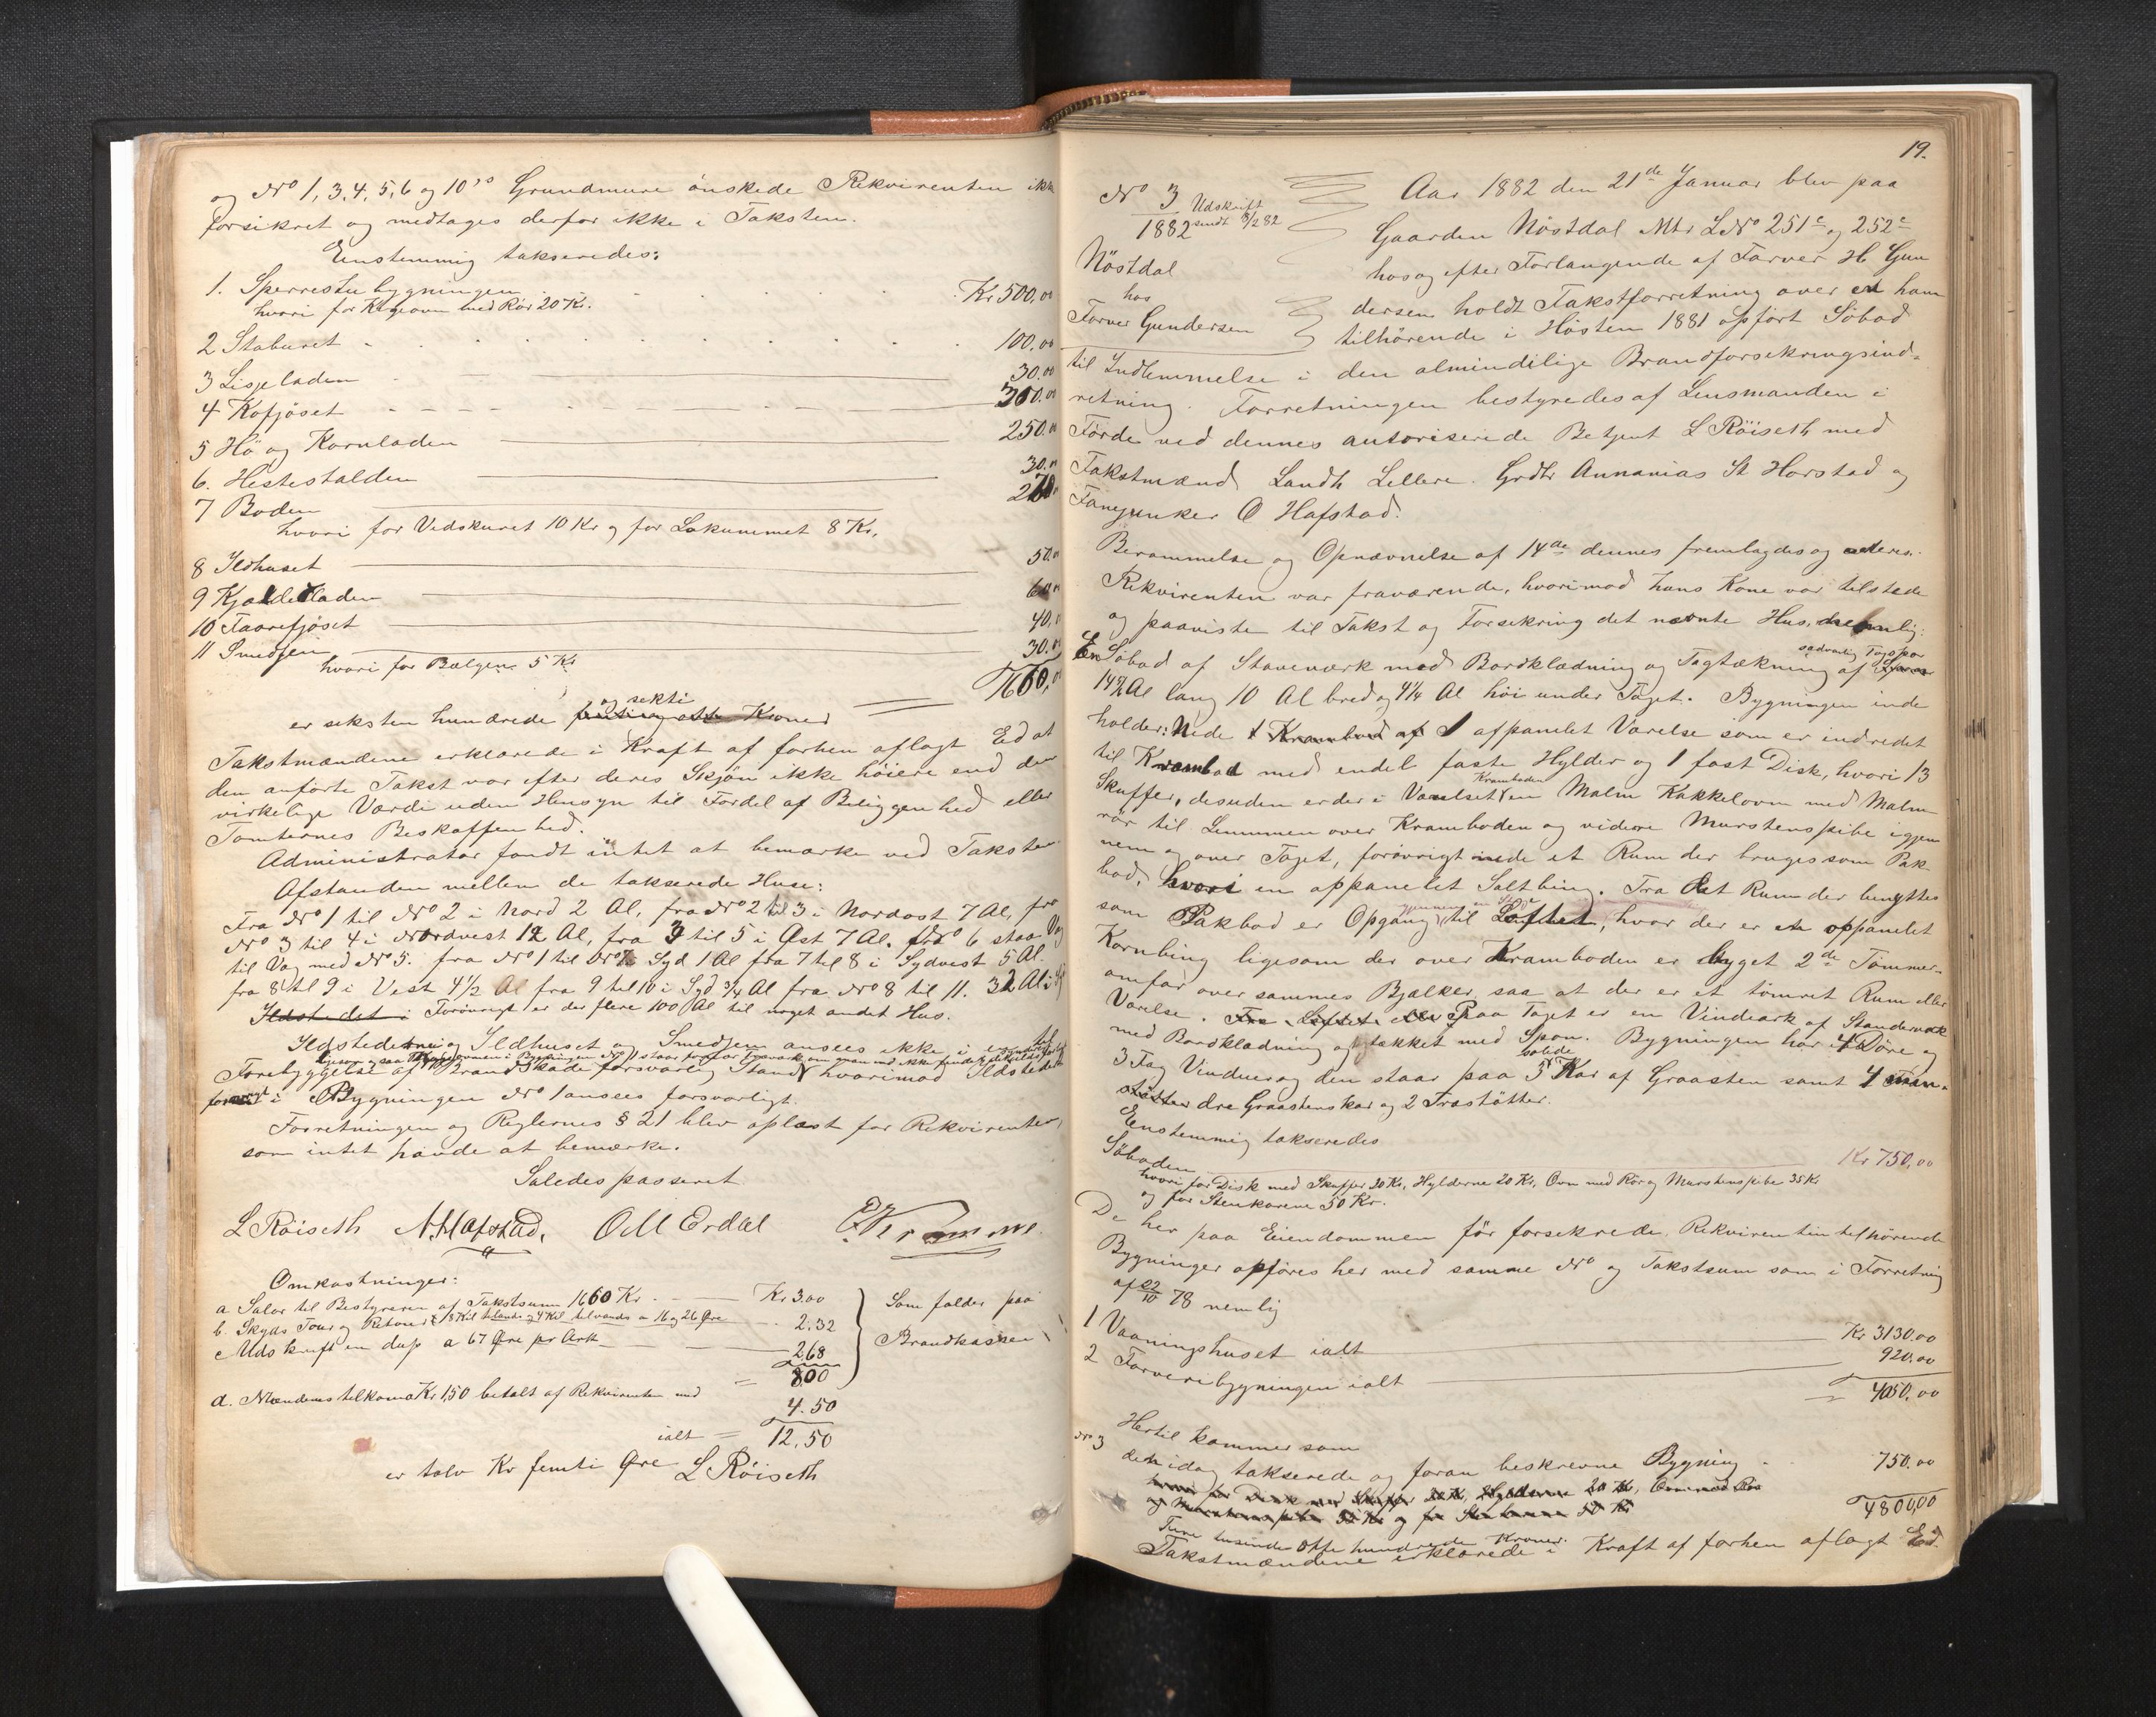 og No 1, 3, 4, 5, 6 og 10's Grundmure önskede Rekvirenten ikke
forsikret og medtages derfor ikke i Taksten.
Enstemmig takseredes:
1. Sperrestubygningen Kr 500,00
hvori for Kogeovn med Rör 20 Kr.
2 Staburet 100.00
3 Lisjeladen 30.00
4 Kofjöset 300.00
5 Hö og Kornladen 250.00
6. Hestestalden 30.00
7 Boden 270
hvori for Vedskuret 10 Kr og for Lokummet 8 Kr.
8 Ildhuset 50.00
9 Kjælderladen 60.00
10 Faarefjöset 40.
11 Smedjen 30.00
hvori for Bælgen 5 Kr
1660,00
er seksten hundrede og sekti Kroner
Takstmændene erklærede i Kraft af forhen aflagt Ed at
den anförte Takst var efter deres Skjön ikke höiere end den
virkelige Værdi uden Hensyn til Fordel af Beliggenhed eller
Tomternes Beskaffenhed.
Administrator fandt intet at bemærke ved Taksten
Afstanden mellem de takserede Huse:
Fra No 1 til No 2 i Nord 2 Al, fra No 2 til 3 i Nordost 7 Al, fra
No 3 til 4 i Nordvest 12 Al, fra 3 til 5 i Öst 7 Al. No 6 staar Væg
til Væg med No 5. fra No 1 til No 7 Syd 1 Al fra 7 til 8 i Sydvest 5 Al.
fra 8 til 9 i Vest 4 1/2 Al fra 9 til 10 i Syd 3/4 Al fra No 8 til 11. 32 Al i
Ildstedet i Forövrigt er der flere 100 Al til noget andet Hus.
Ildstederne i Ildhuset og Smedjen ansees ikke i
Forebyggelse af Brandskade forsvarlig Stand hvorimod Ildstedet
i Bygningen No 1 ansees forsvarligt.
Forretningen og Reglernes § 21 blev oplæst for Rekvirenten,
som intet havde at bemærke.
Saledes passeret
L Röiseth N. Hafstad. O M Erdal
Omkostninger:
a Salær til Bestyreren af Takstsum 1660 Kr Kr 3.00
b. Skyds Tour og Retour 18 Kil tillands og 4 Kil tilvands a 16 og 26 Öre 2.32
c Udskrift en dup a 67 Öre pr Ark 2.68
8.00
Som falder paa
Brandkassen
d. Mændenes tilkomme Kr 1,50 betalt af Rekvirenten med 4.50
ialt = 12.50
er tolv Kr femti Öre L Röiseth
19.
No 3
1882
Udskrift
sendt 8/2 82
Nöstdal
hos
Farver Gundersen
Aar 1882 den 21de Januar blev paa
Gaarden Nöstdal Mtr LNo 251c og 252c
hos og efter Forlangende af Farver H Gun
dersen holdt Takstforretning over en ham
tilhörende i Hösten 1881 opfört Söbod
til Indlemmelse i den almindelige Brandforsikringsind-
retning. Forretningen bestyredes af Lensmanden i
Förde ved dennes autoriserede Betjent L Röiseth med
Takstmænd Landh Lellere. Grdbr Annanias St Horstad og
Fanejunker O Hafstad.
Berammelse og Opnævnelse af 14de dennes fremlagdes og
Rekvirenten var fraværende, hvorimod hans Kone var tilstede
og paaviste til Takst og Forsikring det nævnte Hus, nemlig:
En Söbod af Stavværk med Bordklædning og Tagtækning af sædvanlig Tagspon
14 1/2 Al lang 10 Al bred og 4 1/4 Al höi under Taget. Bygningen inde
holder: Nede 1 Krambod af 1 afpanelet Værelse som er indredet
til Krambod med endel faste Hylder og 1 fast Disk, hvori 13
Skuffer, desuden er der i Kramboden en Malm Kakkelovn med Malm
rör til Lemmen over Kramboden og videre Murstenspibe igjen
nem og over Taget, forövrigt nede et Rum der bruges som Pak
bod, hvori en oppanelet Saltbing. Fra det Rum der benyttes
som Pakbod er Opgang til Loftet, hvor der er en oppanelet
Kornbing ligesom der over Kramboden er bygget 2de Tömmer-
omfar over sammes Bjælker, saa at der er et tömret Rum eller
Værelse. Fra Loftet Paa Taget er en Vindeark af Standerværk
med Bordklædning og tækket med Spon. Bygningen har 4 Döre og
3 Fag Vinduer og den staar paa 3 solide Kar af Graasten samt 4
dre Graastenskar og 2 Træstötter.
Enstemmig takseredes
Söboden Kr 750,00
hvori for Disk med Skuffer 30 Kr, Hylderne 20 Kr, Ovn med Rör og Murstenspibe 35 Kr
og for Stenkarene 50 Kr.
De her paa Eiendommen för forsikrede Rekvirenten tilhörende
Bygninger opföres her med samme No og Takstsum som i Forretning
af 22/10 78 nemlig
1 Vaaningshuset ialt Kr 3130.00
2 Farveribygningen ialt 920.00
= 4050,00
Hertil kommer som
No 3 den idag takserede og foran beskrevne Bygning 750.00
hvori for Disk med Skuffer 30 Kr, Hylderne 20 Kr, Ovn med Rör
og Murstenspibe 35 Kr og for Stenkarene 50 Kr
4800,00
Fire tusinde Otte hundrede Kroner.
Takstmændene erklærede i Kraft af forhen aflagt Ed.